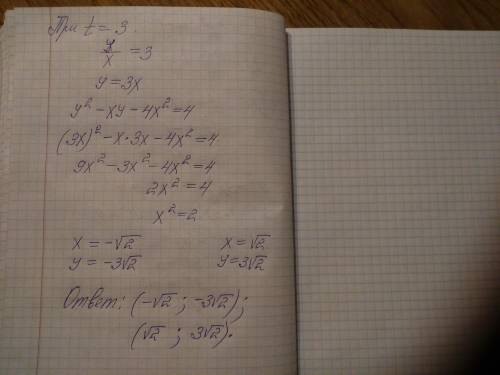 При t = 3.
y/x = 3
y = 3x
y² - xy - 4x² = 4
(3x)² - x·3x - 4x² = 4
9x² - 3x² - 4x² = 4
2x² = 4
x² = 2
x = -√2    x = √2
y = -3√2    y = 3√2
Ответ: (-√2 ; -3√2);
(√2 ; 3√2).